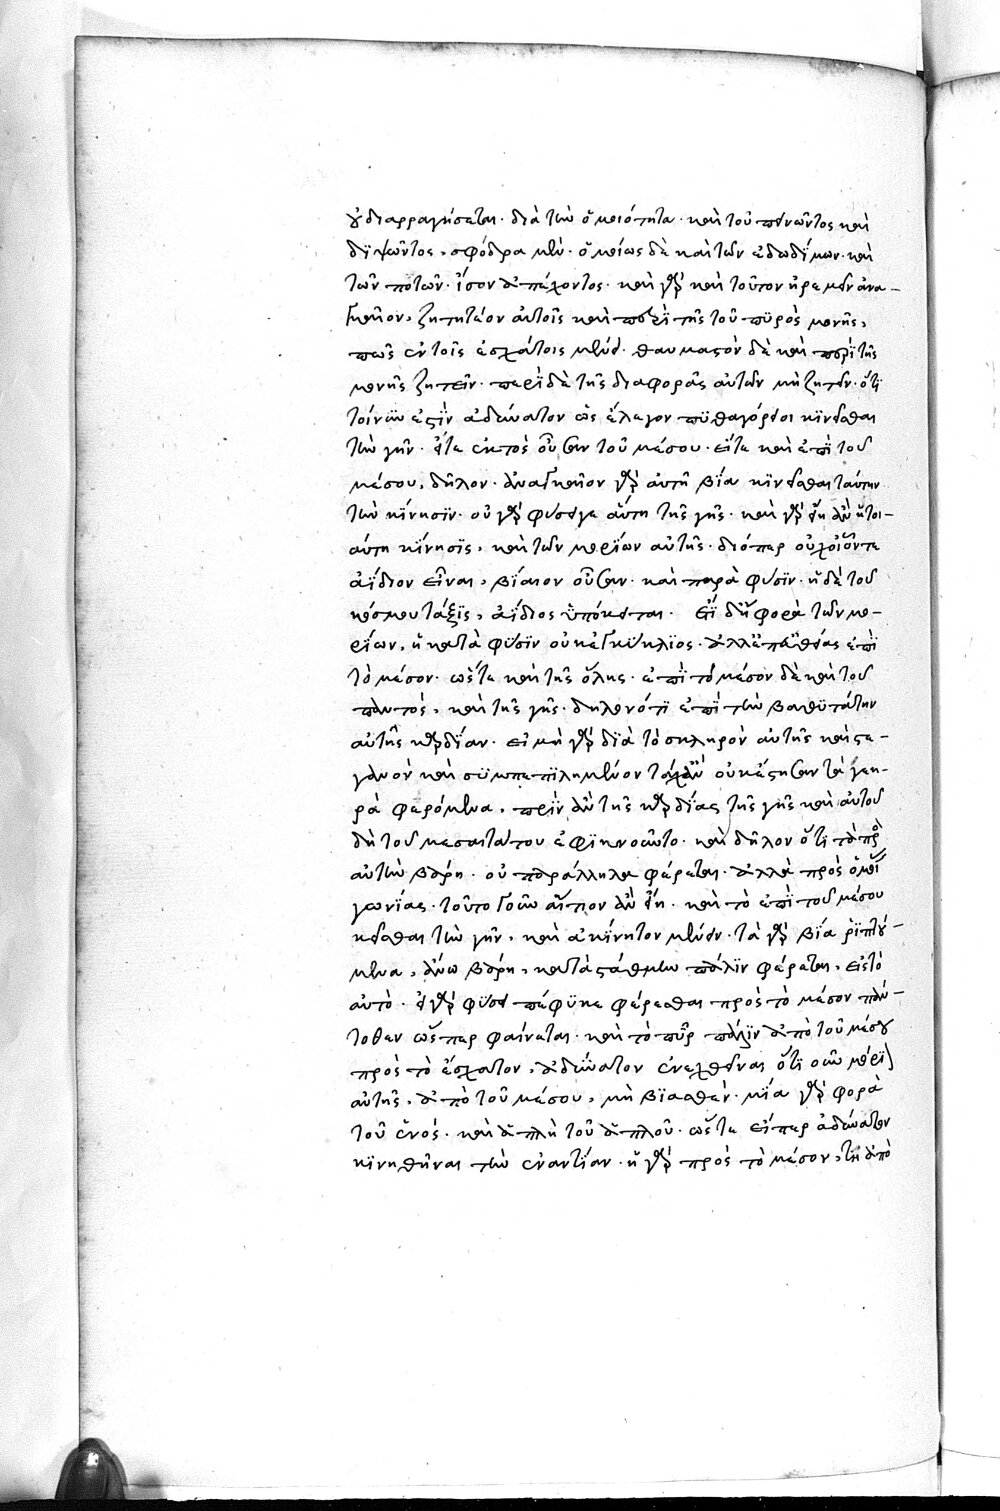 οὐ διαρραγήσεται· διὰ τὴν ὁμοιότητα· καὶ τοῦ πεινῶντος καὶ
διψῶντος, σφόδρα μὲν· ὁμοίως δὲ καὶ τῶν ἐδωδίμων· καὶ
τῶν ποτῶν· ἴσον ἀπέχοντος· καὶ γὰρ καὶ τοῦτον ἠρεμεῖν ἀνα-
γκαῖον, ζητητέον αὐτοῖς καὶ περὶ τῆς τοῦ πυρὸς μονῆς,
πῶς ἐν τοῖς ἐσχάτοις μένει· θαυμαστὸν δὲ καὶ περὶ τῆς
μονῆς ζητεῖν· περὶ δὲ τῆς διαφορᾶς αὐτῶν μὴ ζητεῖν· ὅτι
τοίνυν ἐστὶν ἀδύνατον ὡς ἔλεγον πυθαγόρειοι κινεῖσθαι
τὴν γῆν· εἴτε ἐκτὸς οὖσαν τοῦ μέσου· εἴτε καὶ ἐπὶ τοῦ
μέσου, δῆλον· ἀναγκαῖον γὰρ αὐτῇ βία κινεῖσθαι ταύτην
τὴν κίνησιν· οὐ γὰρ φύσει γε αὕτη τῆς γῆς· καὶ γὰρ εἴη ἂν ἥτοι-
αύτη κίνησις, καὶ τῶν μορίων αὐτῆς· διόπερ οὐχ οἷόν τε
ἀΐδιον εἶναι, βίαιον οὖσαν· καὶ παρὰ φύσιν· ἡ δὲ τοῦ
κόσμου τάξις, ἀΐδιος ὑπόκειται· Ἔτι δ' ἡ φορὰ τῶν μο-
ρίων, ἡ κατὰ φύσιν οὐκ ἐγκύκλιος· ἀλλ' ἐπ' εὐθείας ἐπὶ
τὸ μέσον· ὥστε καὶ τῆς ὅλης· ἐπὶ τὸ μέσον δὲ καὶ τοῦ
παντὸς, καὶ τῆς γῆς· δηλονότι ἐπὶ τὴν βαθυτάτην
αὐτῆς καρδίαν· εἰ μὴ γὰρ διὰ τὸ σκληρὸν αὐτῆς καὶ στε-
γανὸν καὶ συμπεπιλημένον τάχ' ἂν οὐκ ἔστησαν τὰ γεη-
ρὰ φερόμενα, πρὶν ἂν τῆς καρδίας τῆς γῆς καὶ αὐτοῦ
δὴ τοῦ μεσαιτάτου ἐφικνοῦντο· καὶ δῆλον ὅτι τὰ πρὸς
αὐτὴν βάρη· οὐ παράλληλα φέρεται· ἀλλὰ πρὸς ὁμοί
γωνίας· τοῦτο γοῦν αἴτιον ἂν εἴη· καὶ τὸ ἐπὶ τοῦ μέσου
κεῖσθαι τὴν γῆν, καὶ ἀκίνητον μένειν· τὰ γὰρ βία ῥιπτού-
μενα, ἄνω βάρη, κατὰ στάθμην πάλιν φέρεται, εἰς τὸ
αὐτὸ· ἡ γὰρ φύσει πέφυκε φέρεσθαι πρὸς τὸ μέσον πάν-
τοθεν ὥσπερ φαίνεται· καὶ τὸ πῦρ πάλιν ἀπὸ τοῦ μέσου
πρὸς τὸ ἔσχατον, ἀδύνατον ἐνεχθῆναι ὁτιοῦν μόριον
αὐτῆς, ἀπὸ τοῦ μέσου, μὴ βιασθὲν· μία γὰρ φορὰ
τοῦ ἑνός· καὶ ἁπλῆ τοῦ ἁπλοῦ· ὥστε εἴπερ ἀδύνατον
κινηθῆναι τὴν ἐναντίαν· ἡ γὰρ πρὸς τὸ μέσον, τῇ ἀπὸ